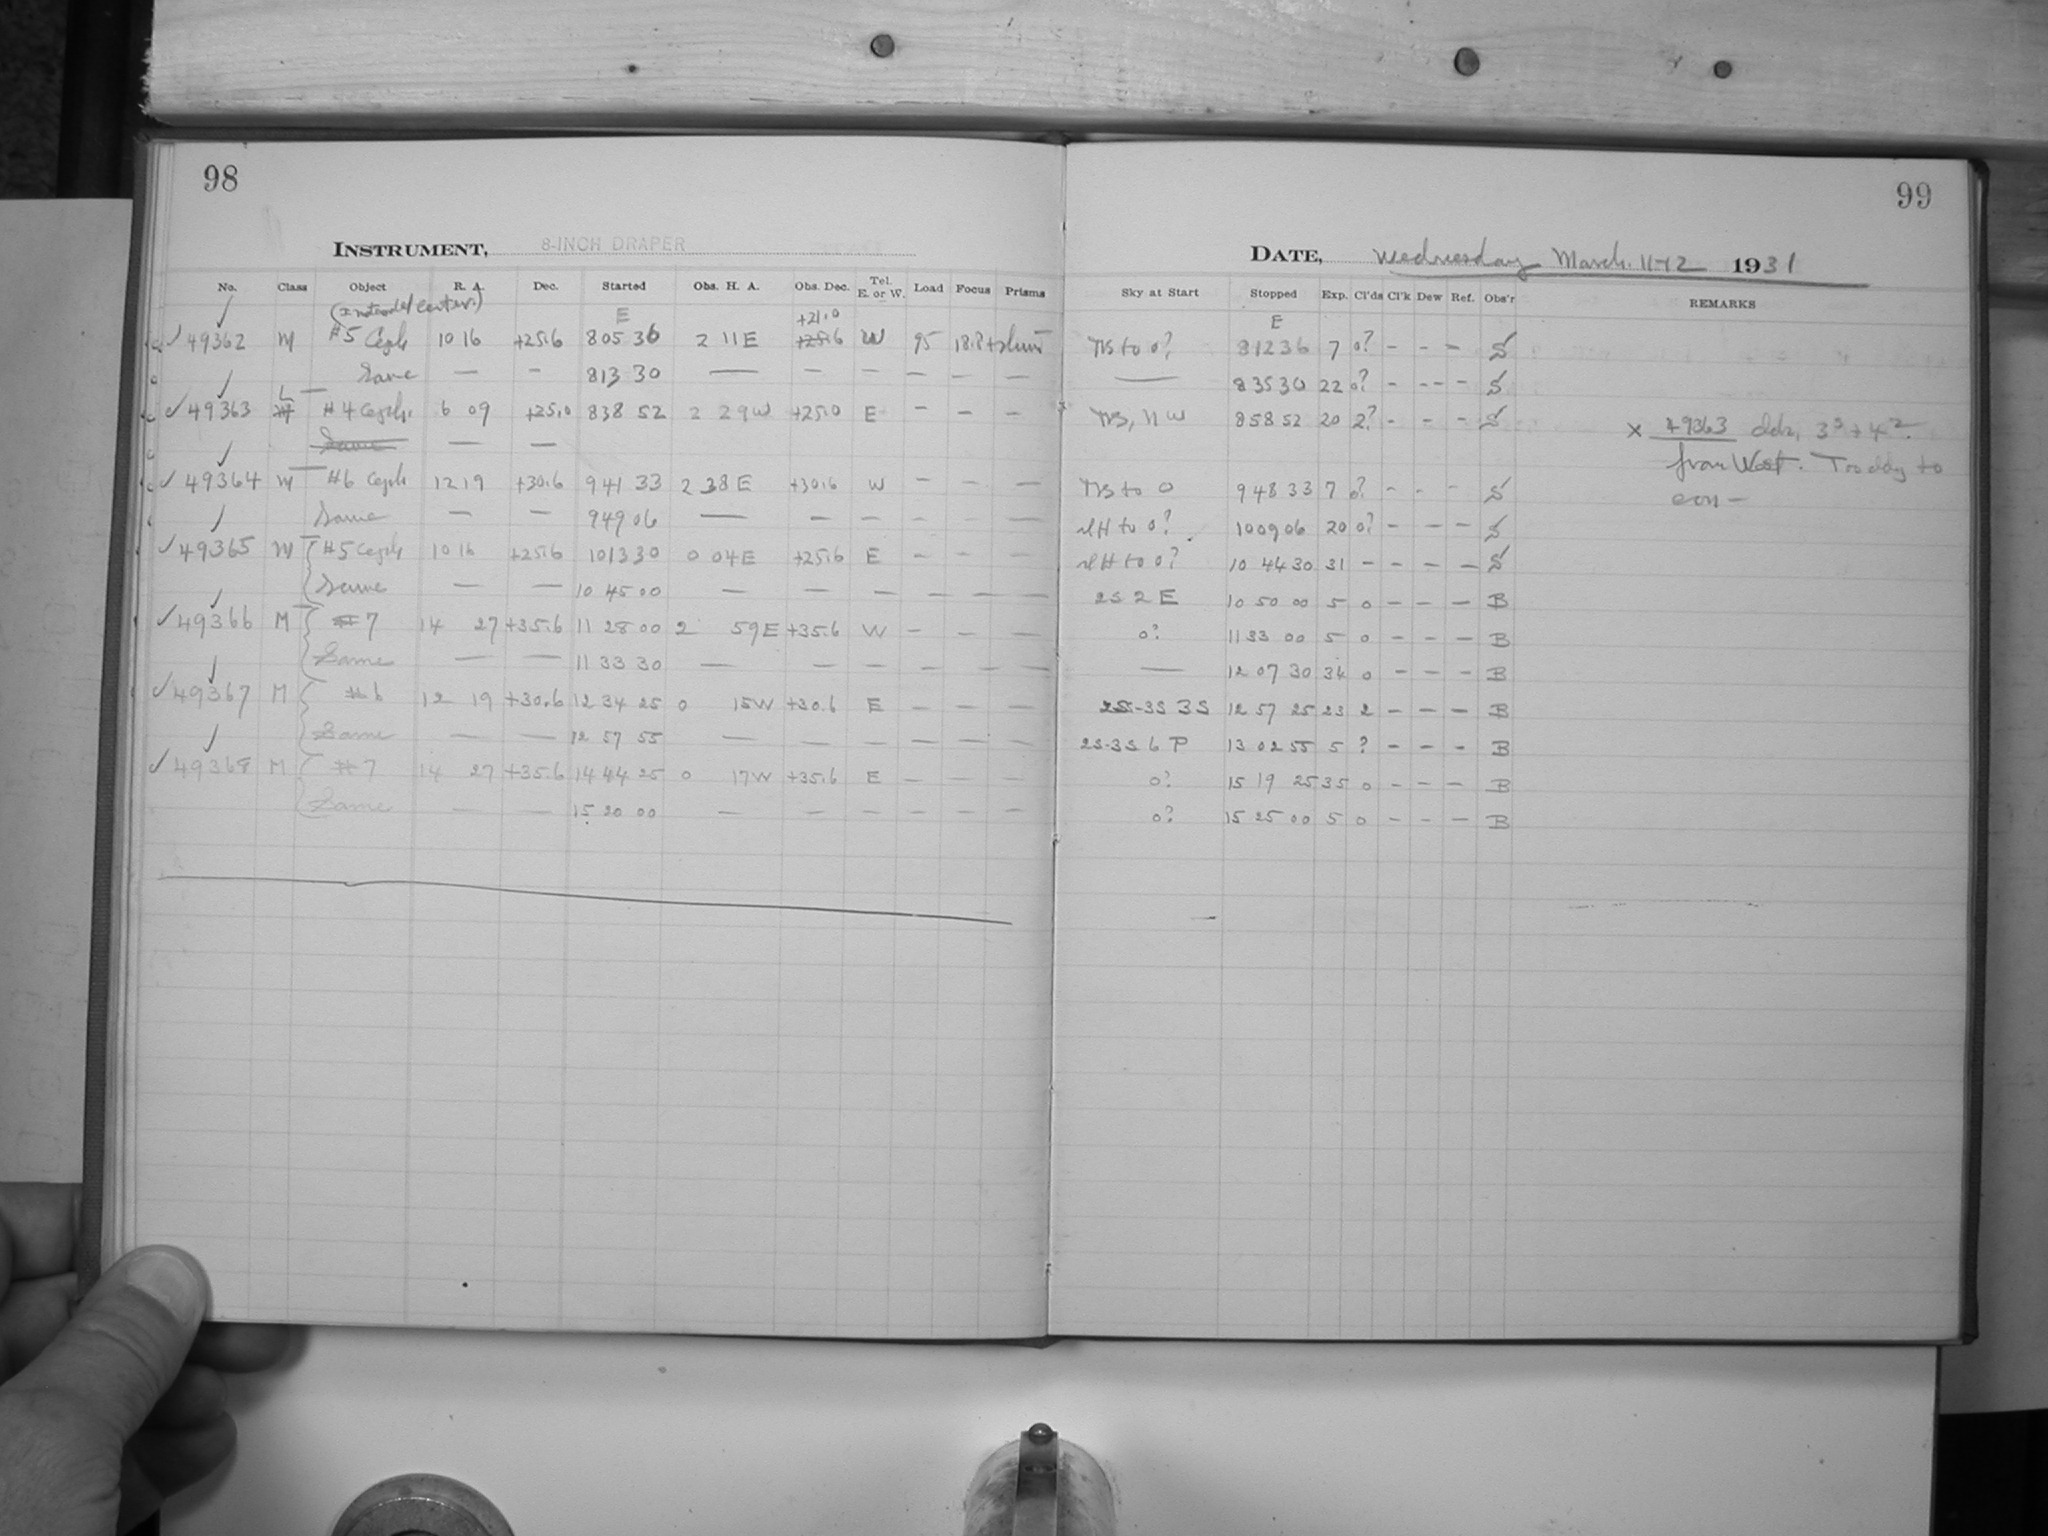 98
INSTRUMENT, 8-INCH DRAPER
No. Class Object R. A. Dec. Started Obs. H. A. Obs. Dec. Tel. E. or W. Load Focus Prisms
E +21.0
✓ 49362 M #5 Ceph 10 16 +25.6 8 05 36 2 11 E +25.6 W 95 18.8
Same — — 8 13 30 — — — — — —
L
✓ 49363 M #4 Ceph. 6 09 +25.0 8 38 52 2 29 W +25.0 E — — —
Same — —
✓ 49364 M #6 Ceph 12 19 +30.6 9 41 33 2 38 E +30.6 W — — —
Same — — 9 49 06 — — — — — —
✓ 49365 M #5 Ceph 10 16 +25.6 10 13 30 0 04 E +25.6 E — — —
Same — — 10 45 00 — — — — — —
✓ 49366 M #7 14 27 +35.6 11 28 00 2 59 E +35.6 W — — —
Same — — 11 33 30 — — — — — —
✓ 49367 M #6 12 19 +30.6 12 34 25 0 15 W +30.6 E — — —
Same — — 12 57 55 — — — — — —
✓ 49368 M #7 14 27 +35.6 14 44 25 0 17 W +35.6 E — — —
Same — — 15 20 00 — — — — — —
99
DATE, Wednesday March 11-12 1931
Sky at Start Stopped Exp. Cl'ds Cl'k Dew Ref. Obs'r REMARKS
E
to 0? 8 12 36 7 0? — — — S
— 8 35 30 22 0? — — — S
8 58 52 20 2? — — — S
× 49363 3³ + 4²
from West. to
to 0 9 48 33 7 0? — — — S
to 0? 10 09 06 20 0? — — — S
to 0? 10 44 30 31 — — — — S
2S 2 E 10 50 00 5 0 — — — B
0? 11 33 00 5 0 — — — B
— 12 07 30 34 0 — — — B
2S-3S 3S 12 57 25 23 2 — — — B
2S-3S 6 P 13 02 55 5 ? — — — B
0? 15 19 25 35 0 — — — B
0? 15 25 00 5 0 — — — B